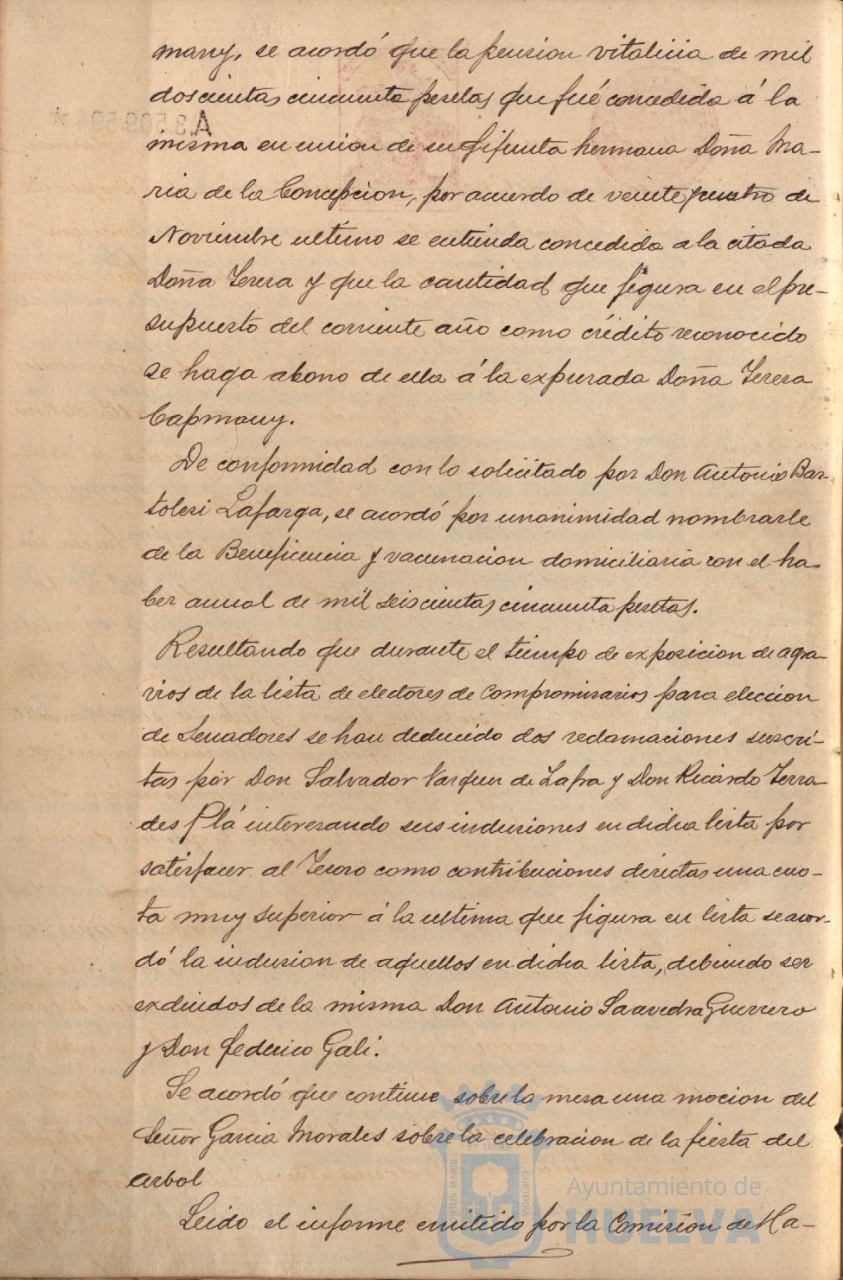 many, se acordó que la pension vitalicia de mil
doscientas cincuenta pesetas que fué concedida á la
misma en union de su difunta hermana Doña Ma-
ria de la Concepcion, por acuerdo de veinte y cuatro de
Noviembre ultimo se entienda concedida a la citada
Doña Teresa y que la cantidad que figura en el pre-
supuesto del corriente año como crédito reconocido
se haga abono de ella á la expresada Doña Teresa
Capmany.
De conformidad con lo solicitado por Don Antonio Bar-
tolesi Lafarga, se acordó por unanimidad nombrarle
de la Beneficencia y vacunacion domiciliaria con el ha-
ber anual de mil seiscientas cincuenta pesetas.
Resultando que durante el tiempo de exposicion de agra-
vios de la lista de electores de compromisarios para eleccion
de Senadores se han deducido dos reclamaciones suscri-
tas por Don Salvador Vazquez de Zafra y Don Ricardo Terra-
des Plá interesando sus inclusiones en dicha lista por
satisfacer al Tesoro como contribuciones directas una cuo-
ta muy superior á la ultima que figura en lista se acor-
dó la inclusion de aquellos en dicha lista, debiendo ser
excluidos de la misma Don Antonio Saavedra Guerrero
y Don Federico Gali.
Se acordó que continue sobre la mesa una mocion del
Señor Garcia Morales sobre la celebracion de la fiesta del
arbol
Leido el informe emitido por la Comision de Ha-
Ayuntamiento de
HUELVA